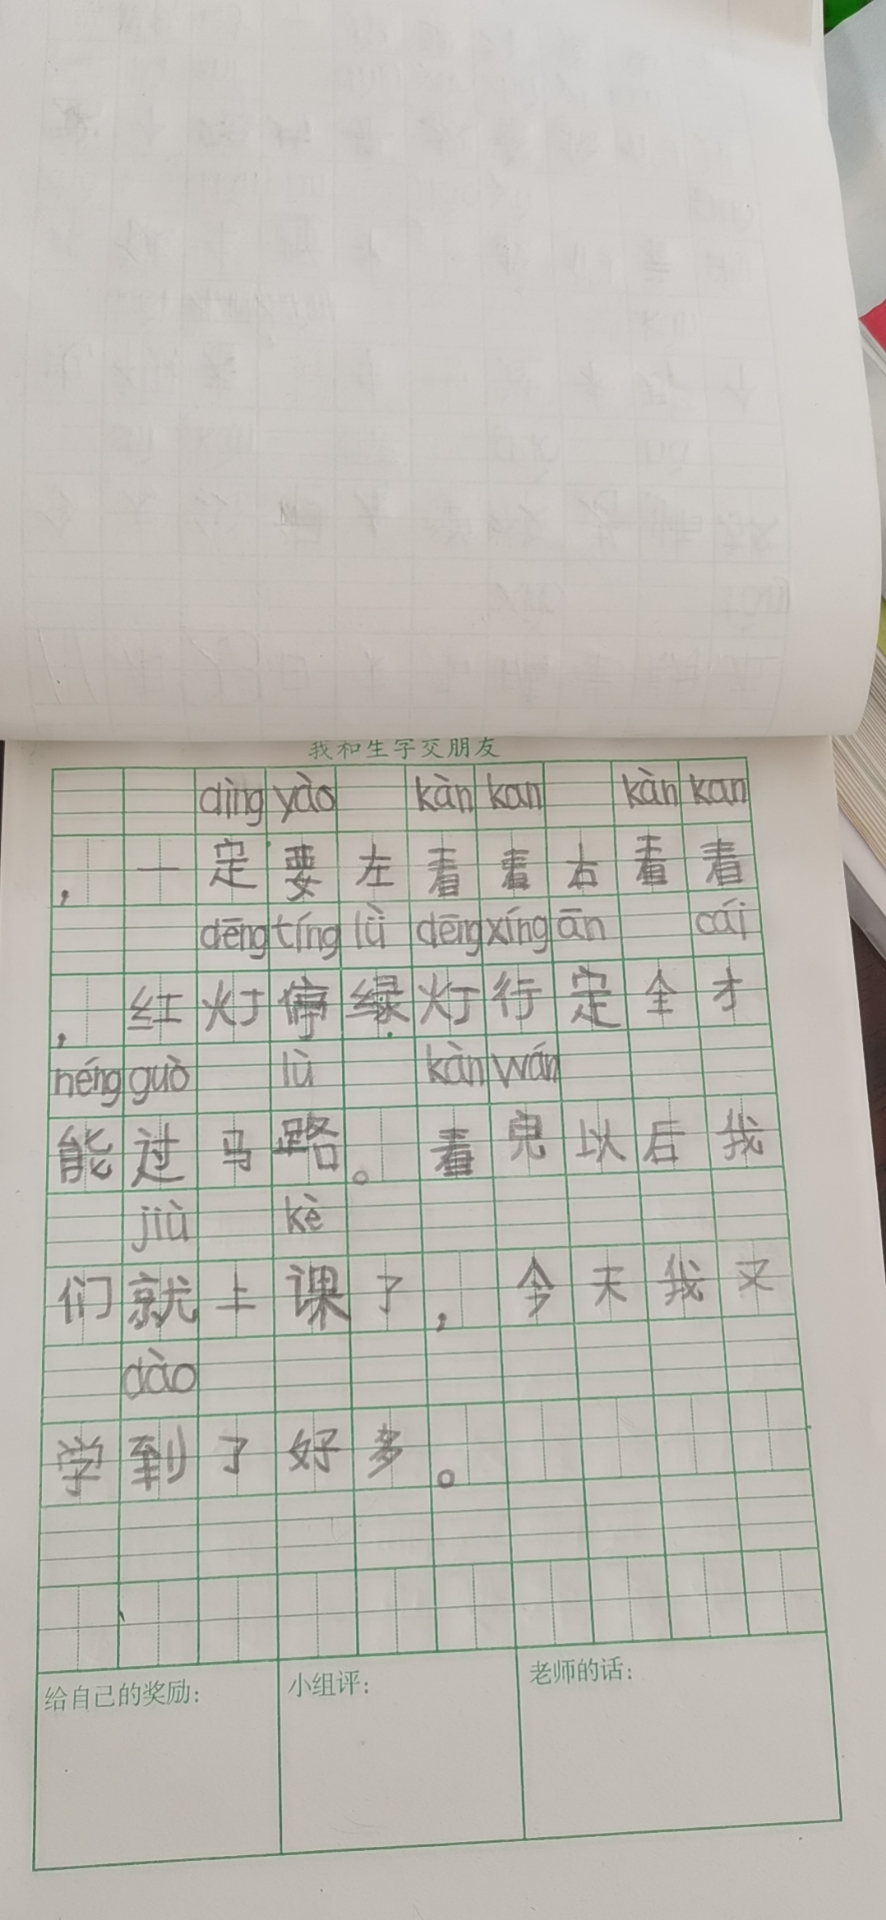 我和生字交朋友
dìng yào kàn kan kàn kan
，一定要左看看右看看
dēng tíng lǜ dēng xíng ān cái
，红灯停绿灯行定全才
néng guò lù kàn wán
能过马路。看完以后我
jiù kè
们就上课了，今天我又
dào
学到了好多。
给自己的奖励：
小组评：
老师的话：